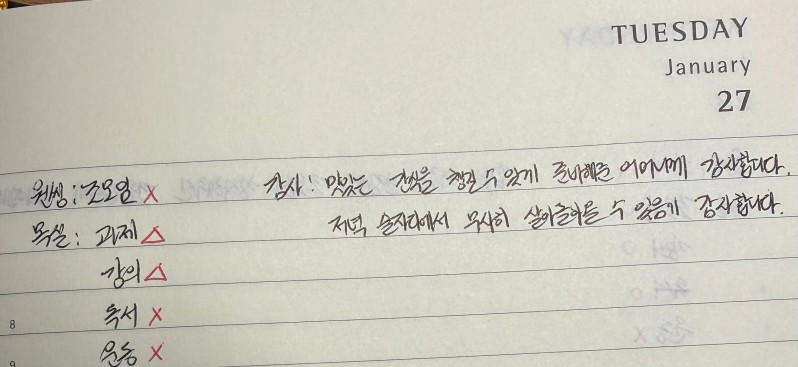 TUESDAY
January
27
원씽 : 조모임 X
감사 : 맛있는 간식을 챙길 수 있게 준비해준 어머니께 감사합니다.
목실 : 과제 △
저녁 술자리에서 무사히 살아돌아올 수 있음에 감사합니다.
강의 △
8
독서 X
9
운동 X